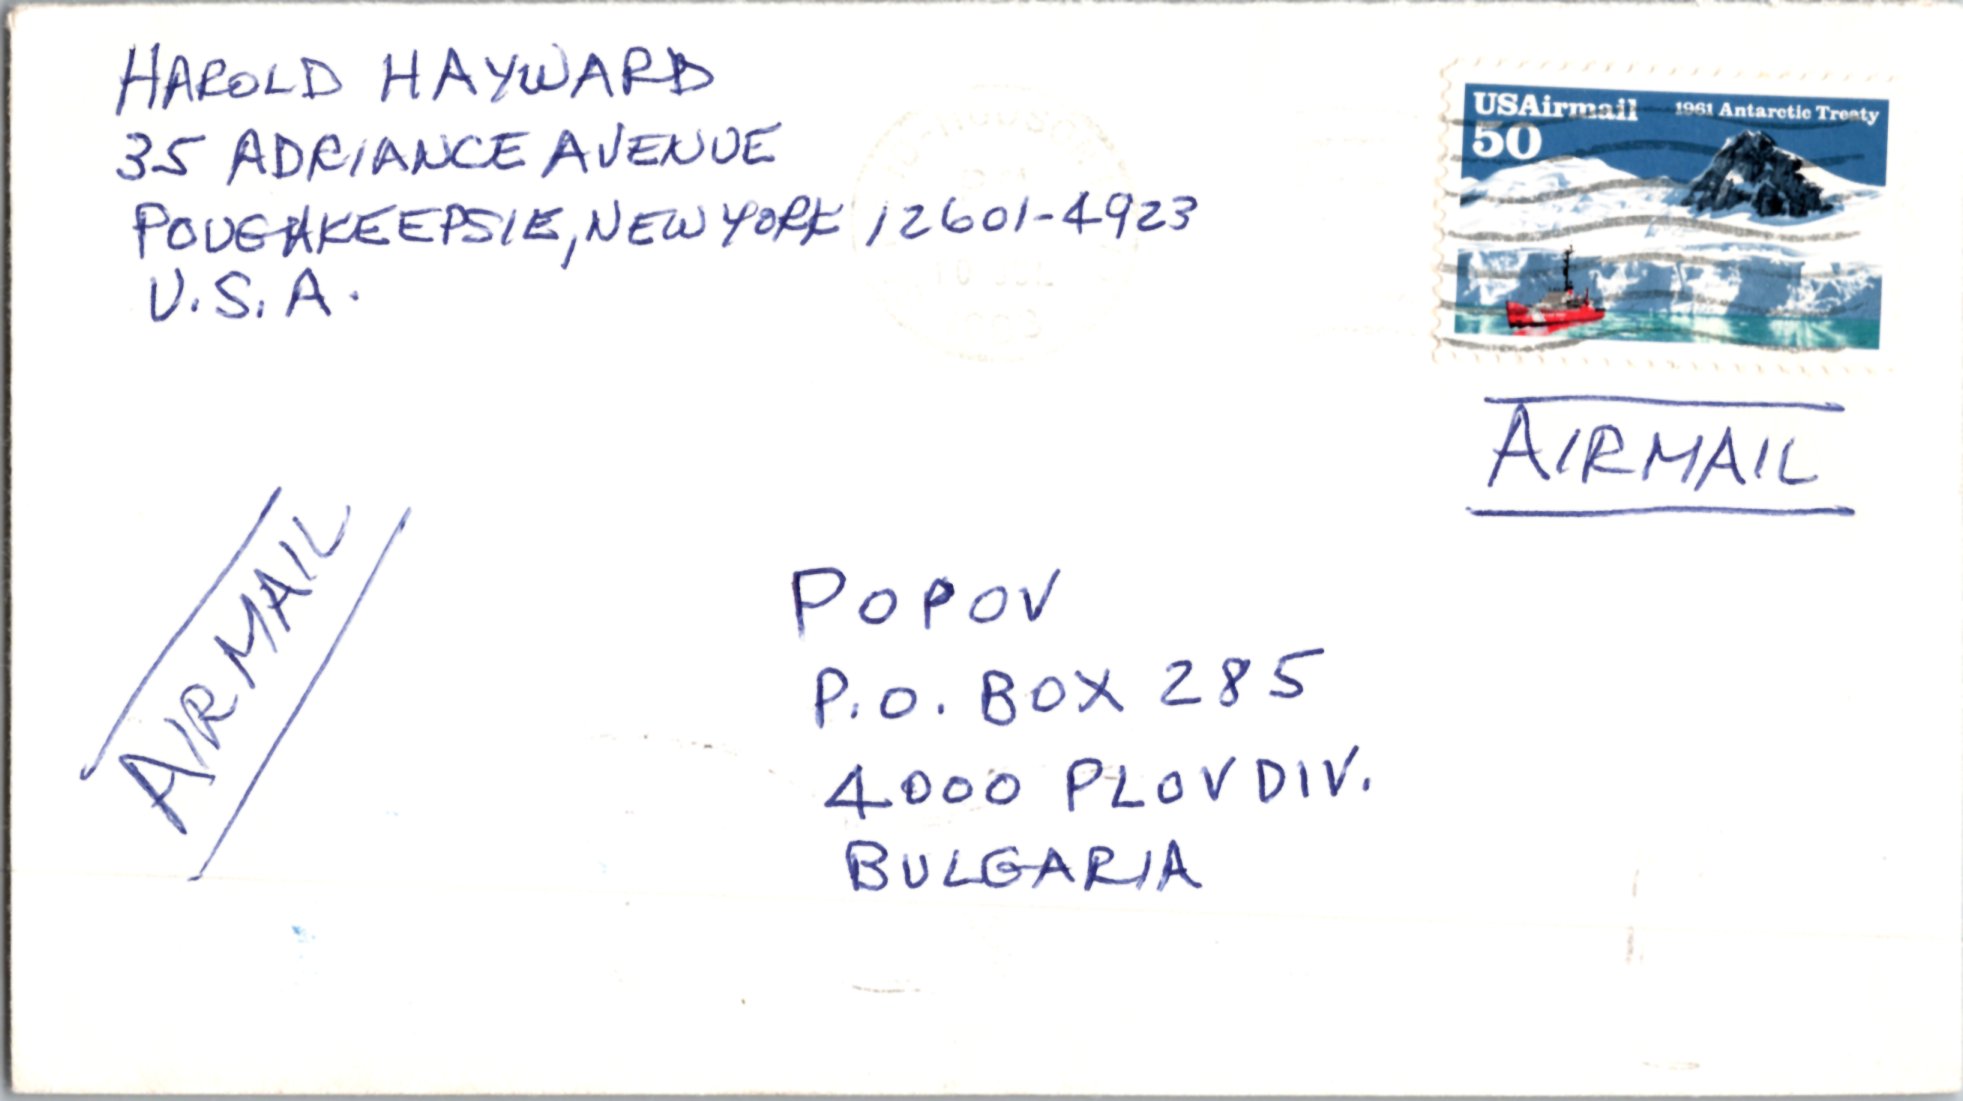 HAROLD HAYWARD
35 ADRIANCE AVENUE
POUGHKEEPSIE, NEW YORK 12601-4923
U.S.A.
USAirmail
50
1961 Antarctic Treaty
AIRMAIL
AIRMAIL
POPOV
P.O. BOX 285
4000 PLOVDIV.
BULGARIA